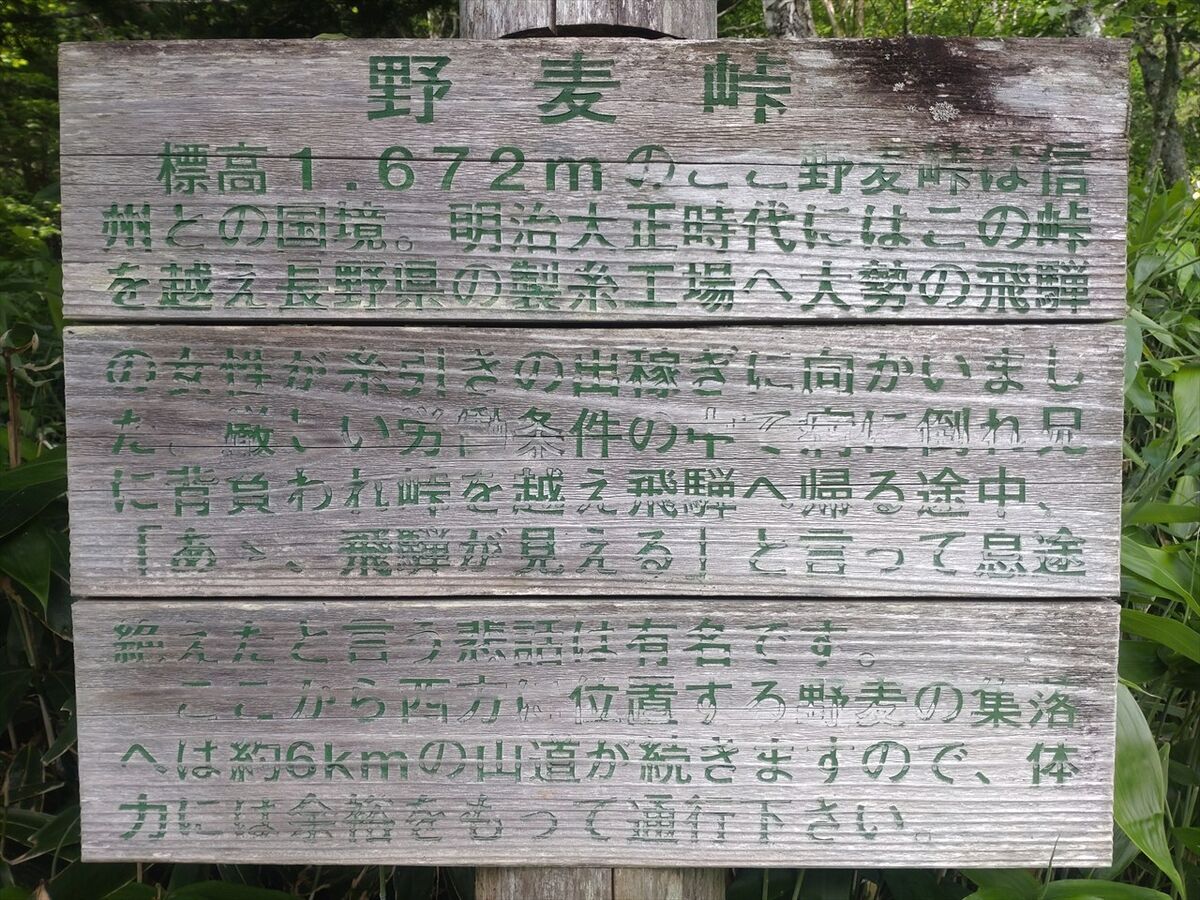 野麦峠
標高1.672mのここ野麦峠は信
州との国境。明治大正時代にはこの峠
を越え長野県の製糸工場へ大勢の飛騨
の女性が糸引きの出稼ぎに向かいまし
た。厳しい労働条件の中で病に倒れ兄
に背負われ峠を越え飛騨へ帰る途中、
「あゝ、飛騨が見える」と言って息途
絶えたと言う悲話は有名です。
ここから西方に位置する野麦の集落
へは約6kmの山道が続きますので、体
力には余裕をもって通行下さい。